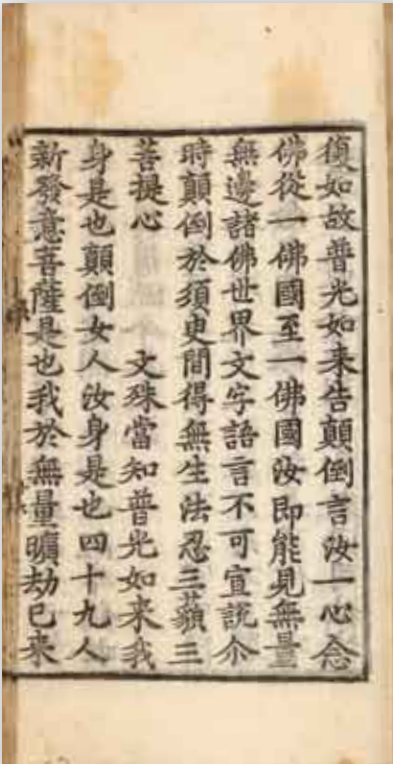 復如故普光如来告顛倒言汝一心念
佛從一佛國至一佛國汝即能見無量
無邊諸佛世界文字語言不可宣說尒
時顛倒於須臾間得無生法忍三藐三
菩提心　　文殊當知普光如来我
身是也顛倒女人汝身是也四十九人
新發意菩薩是也我於無量曠劫已来